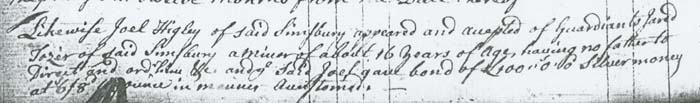 Likewise Joel Higley of said Simsbury appeared and accepted of Guardian to Jared
of said Simsbury a minor of about 16 years of age, having no father to
Direct and order him &c. and ye said Joel gave bond of £100:0:0 Silver money
at 6/8d ounce in manner Accustomed. —